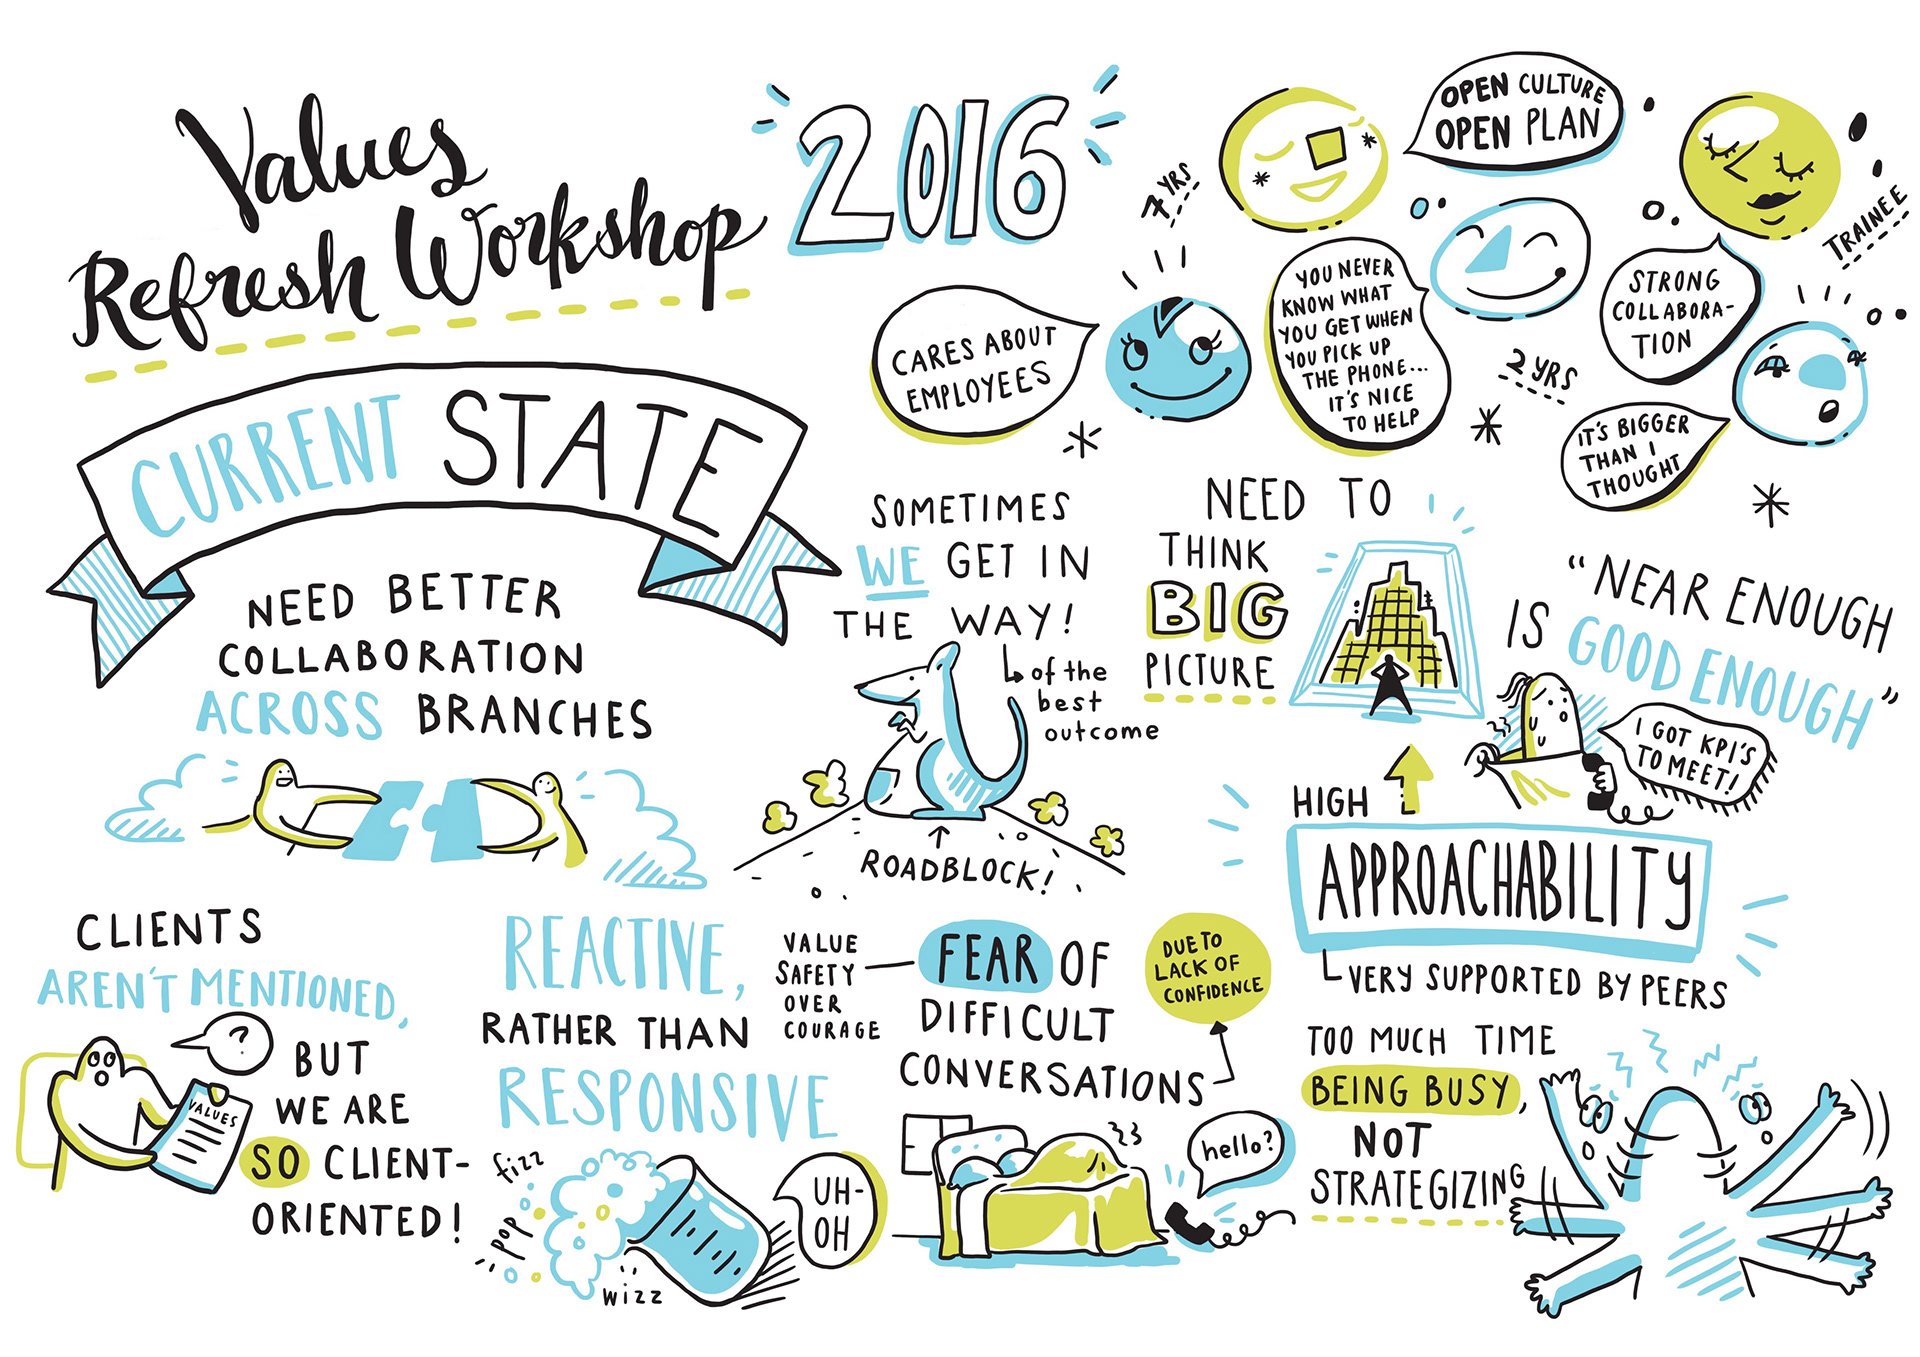 Values
Refresh Workshop
2016
CURRENT STATE
7 YRS
OPEN CULTURE
OPEN PLAN
TRAINEE
CARES ABOUT
EMPLOYEES
YOU NEVER
KNOW WHAT
YOU GET WHEN
YOU PICK UP
THE PHONE...
IT'S NICE
TO HELP
STRONG
COLLABORA-
TION
2 YRS
IT'S BIGGER
THAN I
THOUGHT
NEED BETTER
COLLABORATION
ACROSS BRANCHES
SOMETIMES
WE GET IN
THE WAY!
of the
best
outcome
ROADBLOCK!
NEED TO
THINK
BIG
PICTURE
"NEAR ENOUGH
IS GOOD ENOUGH"
I GOT KPI'S
TO MEET!
HIGH
APPROACHABILITY
VERY SUPPORTED BY PEERS
CLIENTS
AREN'T MENTIONED,
?
BUT
WE ARE
SO CLIENT-
ORIENTED!
VALUES
REACTIVE,
RATHER THAN
RESPONSIVE
fizz
pop
wizz
UH-
OH
VALUE
SAFETY
OVER
COURAGE
FEAR OF
DIFFICULT
CONVERSATIONS
DUE TO
LACK OF
CONFIDENCE
hello?
TOO MUCH TIME
BEING BUSY,
NOT
STRATEGIZING